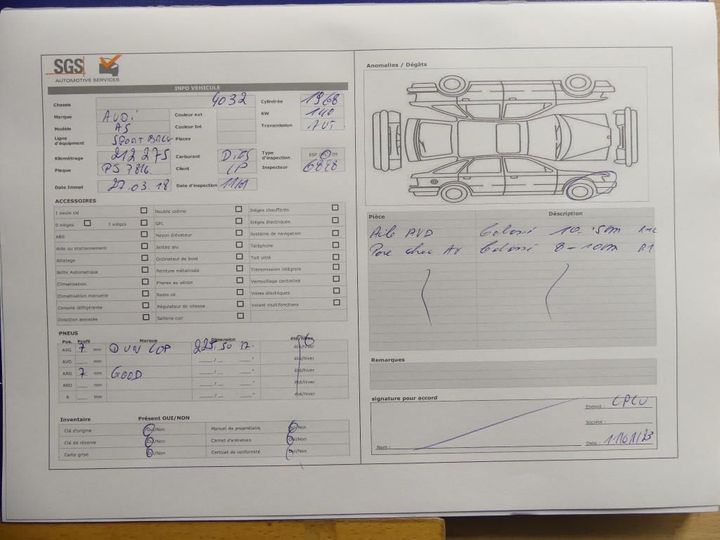 SGS
AUTOMOTIVE SERVICES
INFO VEHICULE
Chassis 4032 Cylindrée 1968
Marque AUDI Couleur ext KW 140
Modèle A5 Couleur Int Transmission AUT
Ligne d'équipement SPORTBACK Pièces
Kilométrage 212 275 Carburant DIES Type d'inspection
Plaque Client LP Inspecteur
Date Immat 27.03.18 Date d'inspection 11/01
ACCESSOIRES
1 seule clé Double cabine Sièges chauffants
5 sièges 7 sièges GPL Sièges électriques
ABD Hayon élévateur Système de navigation
Aide au stationnement Jantes alu Téléphone
Attelage Ordinateur de bord Toit vitré
Boîte Automatique Peinture métallisée Transmission intégrale
Climatisation Phares au xénon Verrouillage centralisé
Climatisation manuelle Radio cd Vitres électriques
Console réfrigérante Régulateur de vitesse Volant multifonctions
Direction assistée Sellerie cuir
PNEUS
Pos. Profil Marque Dimension
AVG 7 mm DUNLOP 225.50 17 été/hiver
AVD mm été/hiver
ARG 7 mm GOOD été/hiver
ARD mm été/hiver
R mm été/hiver
Inventaire Présent OUI/NON
Clé d'origine Oui/Non Manuel de propriétaire Oui/Non
Clé de réserve Oui/Non Carnet d'entretien Oui/Non
Carte grise Oui/Non Certicat de conformité Oui/Non
Anomalies / Dégâts
Pièce Déscription
Aile AVD
Pare choc AV
Remarques
signature pour accord
Nom :
Société :
Date :